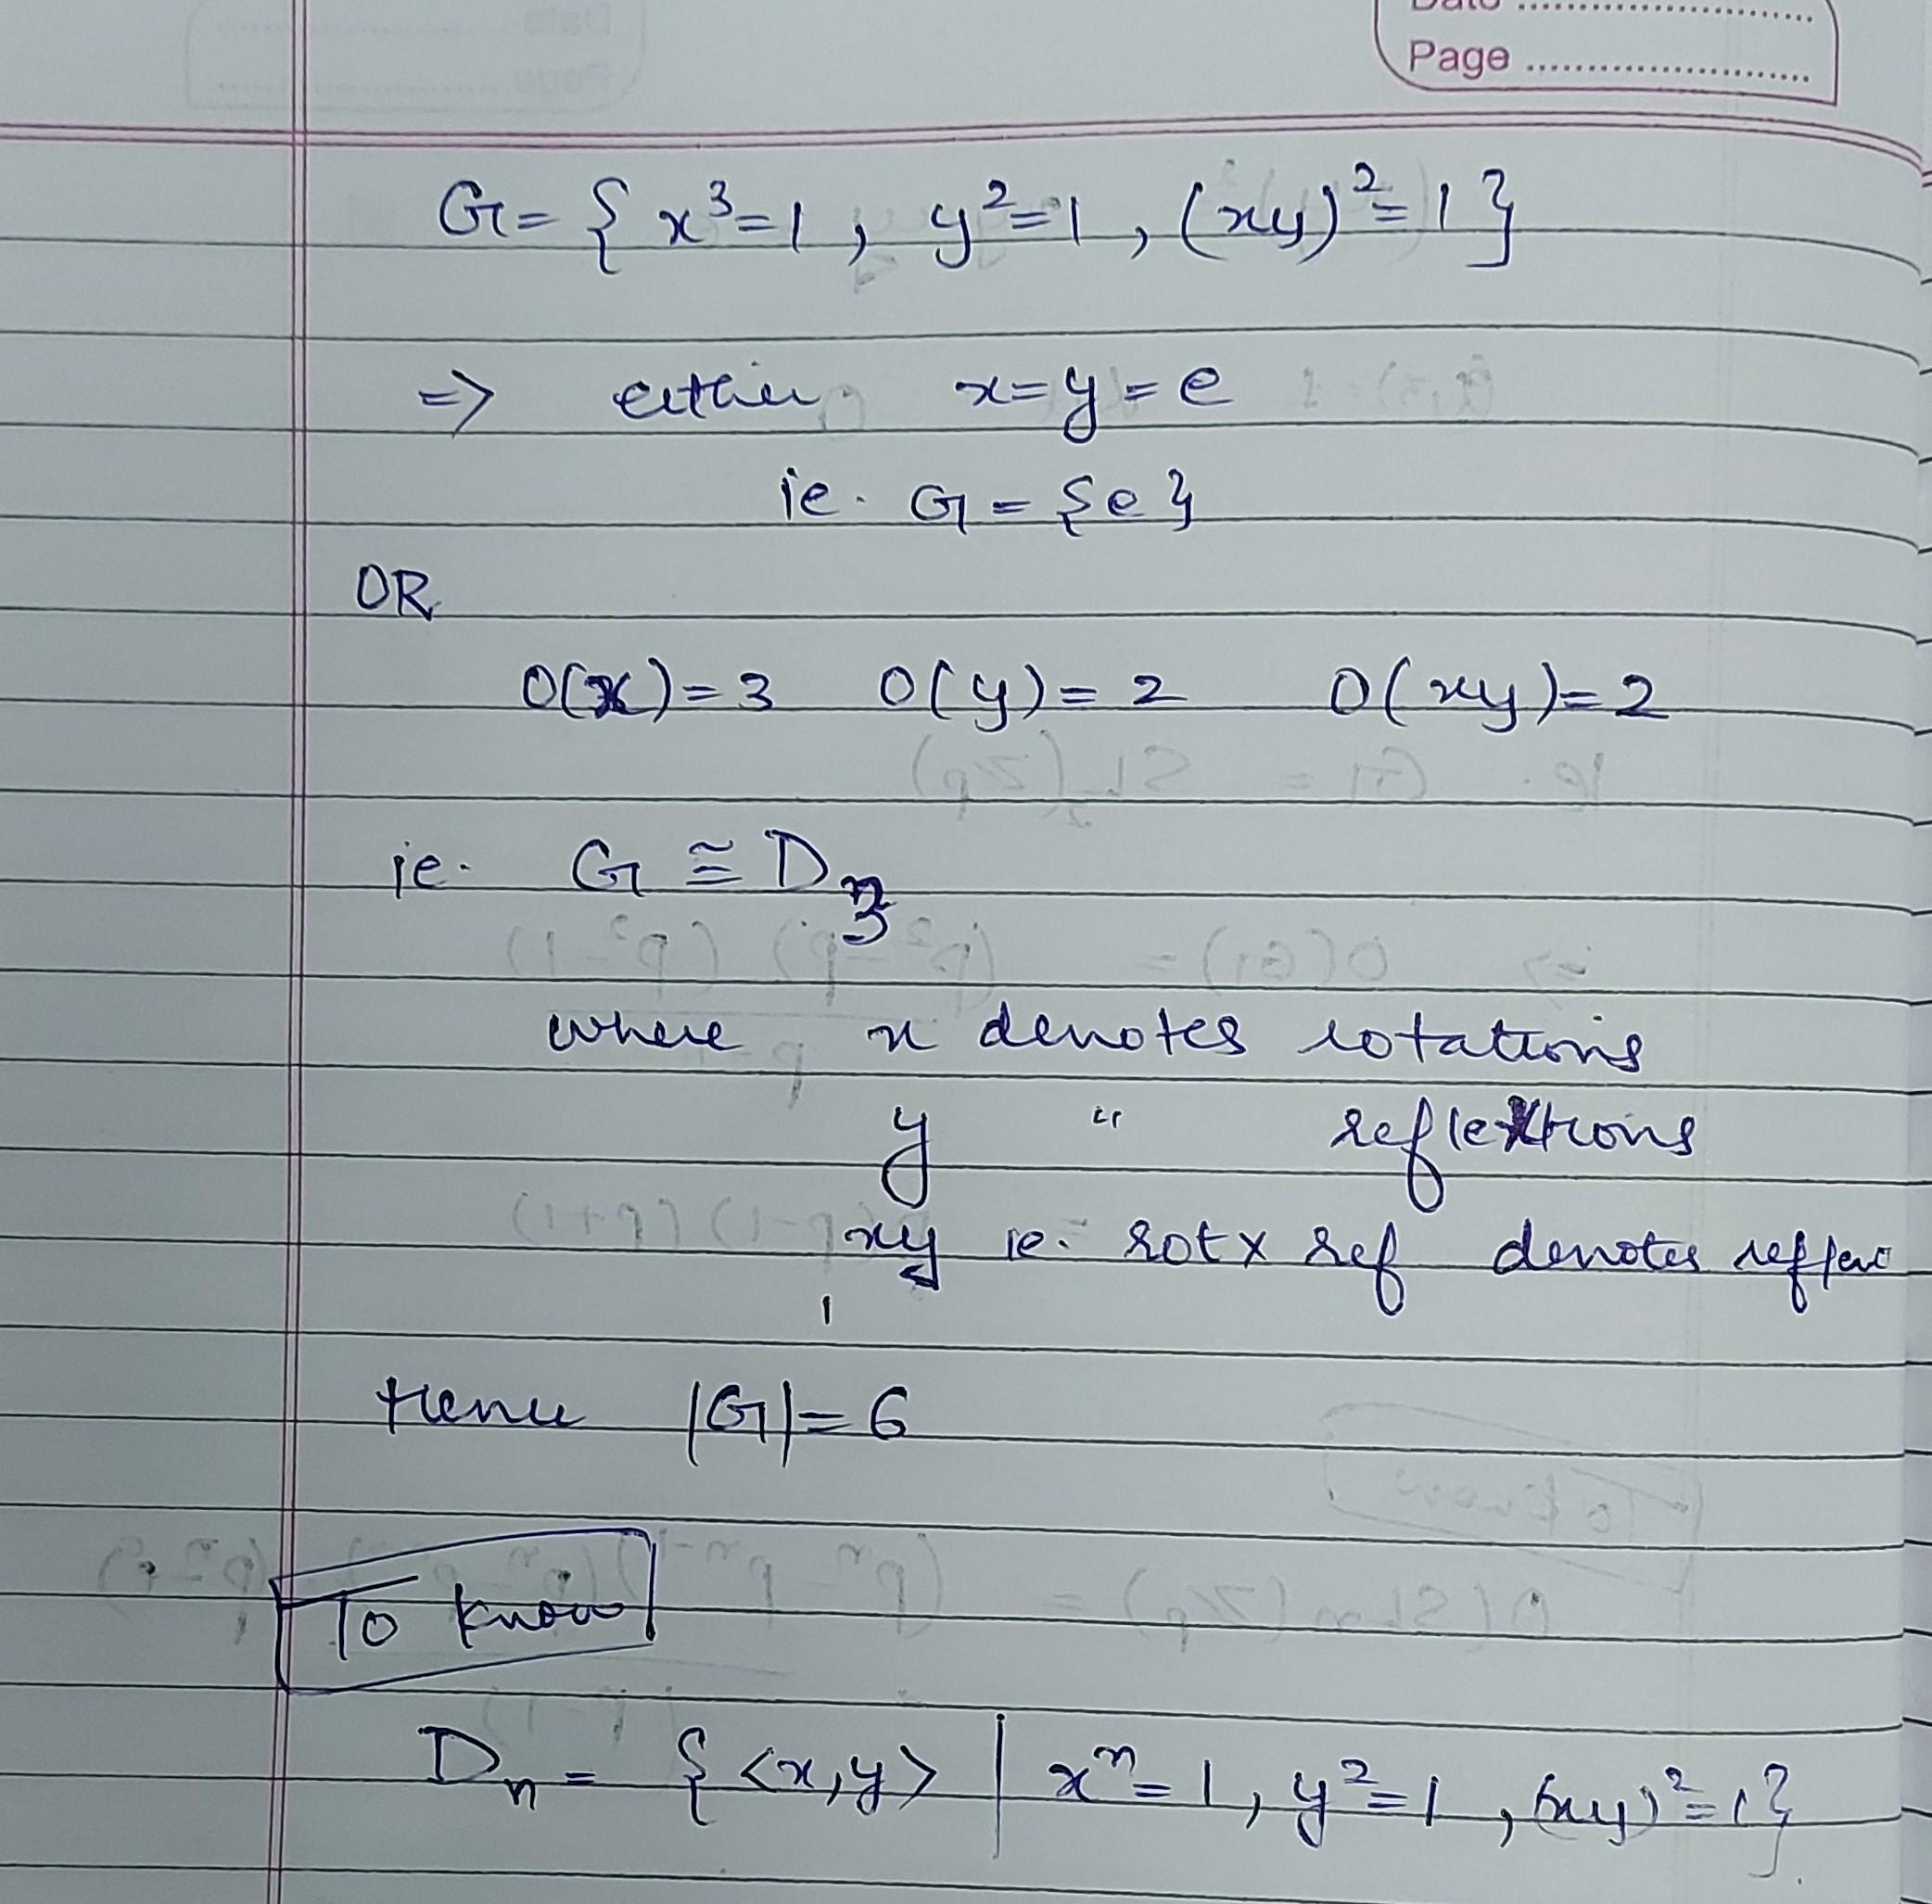 Date ..........................
Page ..........................
G = { x³=1 , y²=1 , (xy)²=1 }
=> either x=y=e
ie. G = {e}
OR
O(x)=3 O(y)=2 O(xy)=2
ie. G ≅ D₃
where x denotes rotations
y " reflextions
xy ie. rot x ref denotes
Hence |G|=6
To know
Dₙ = { <x,y> | xⁿ=1, y²=1, (xy)²=1 }.